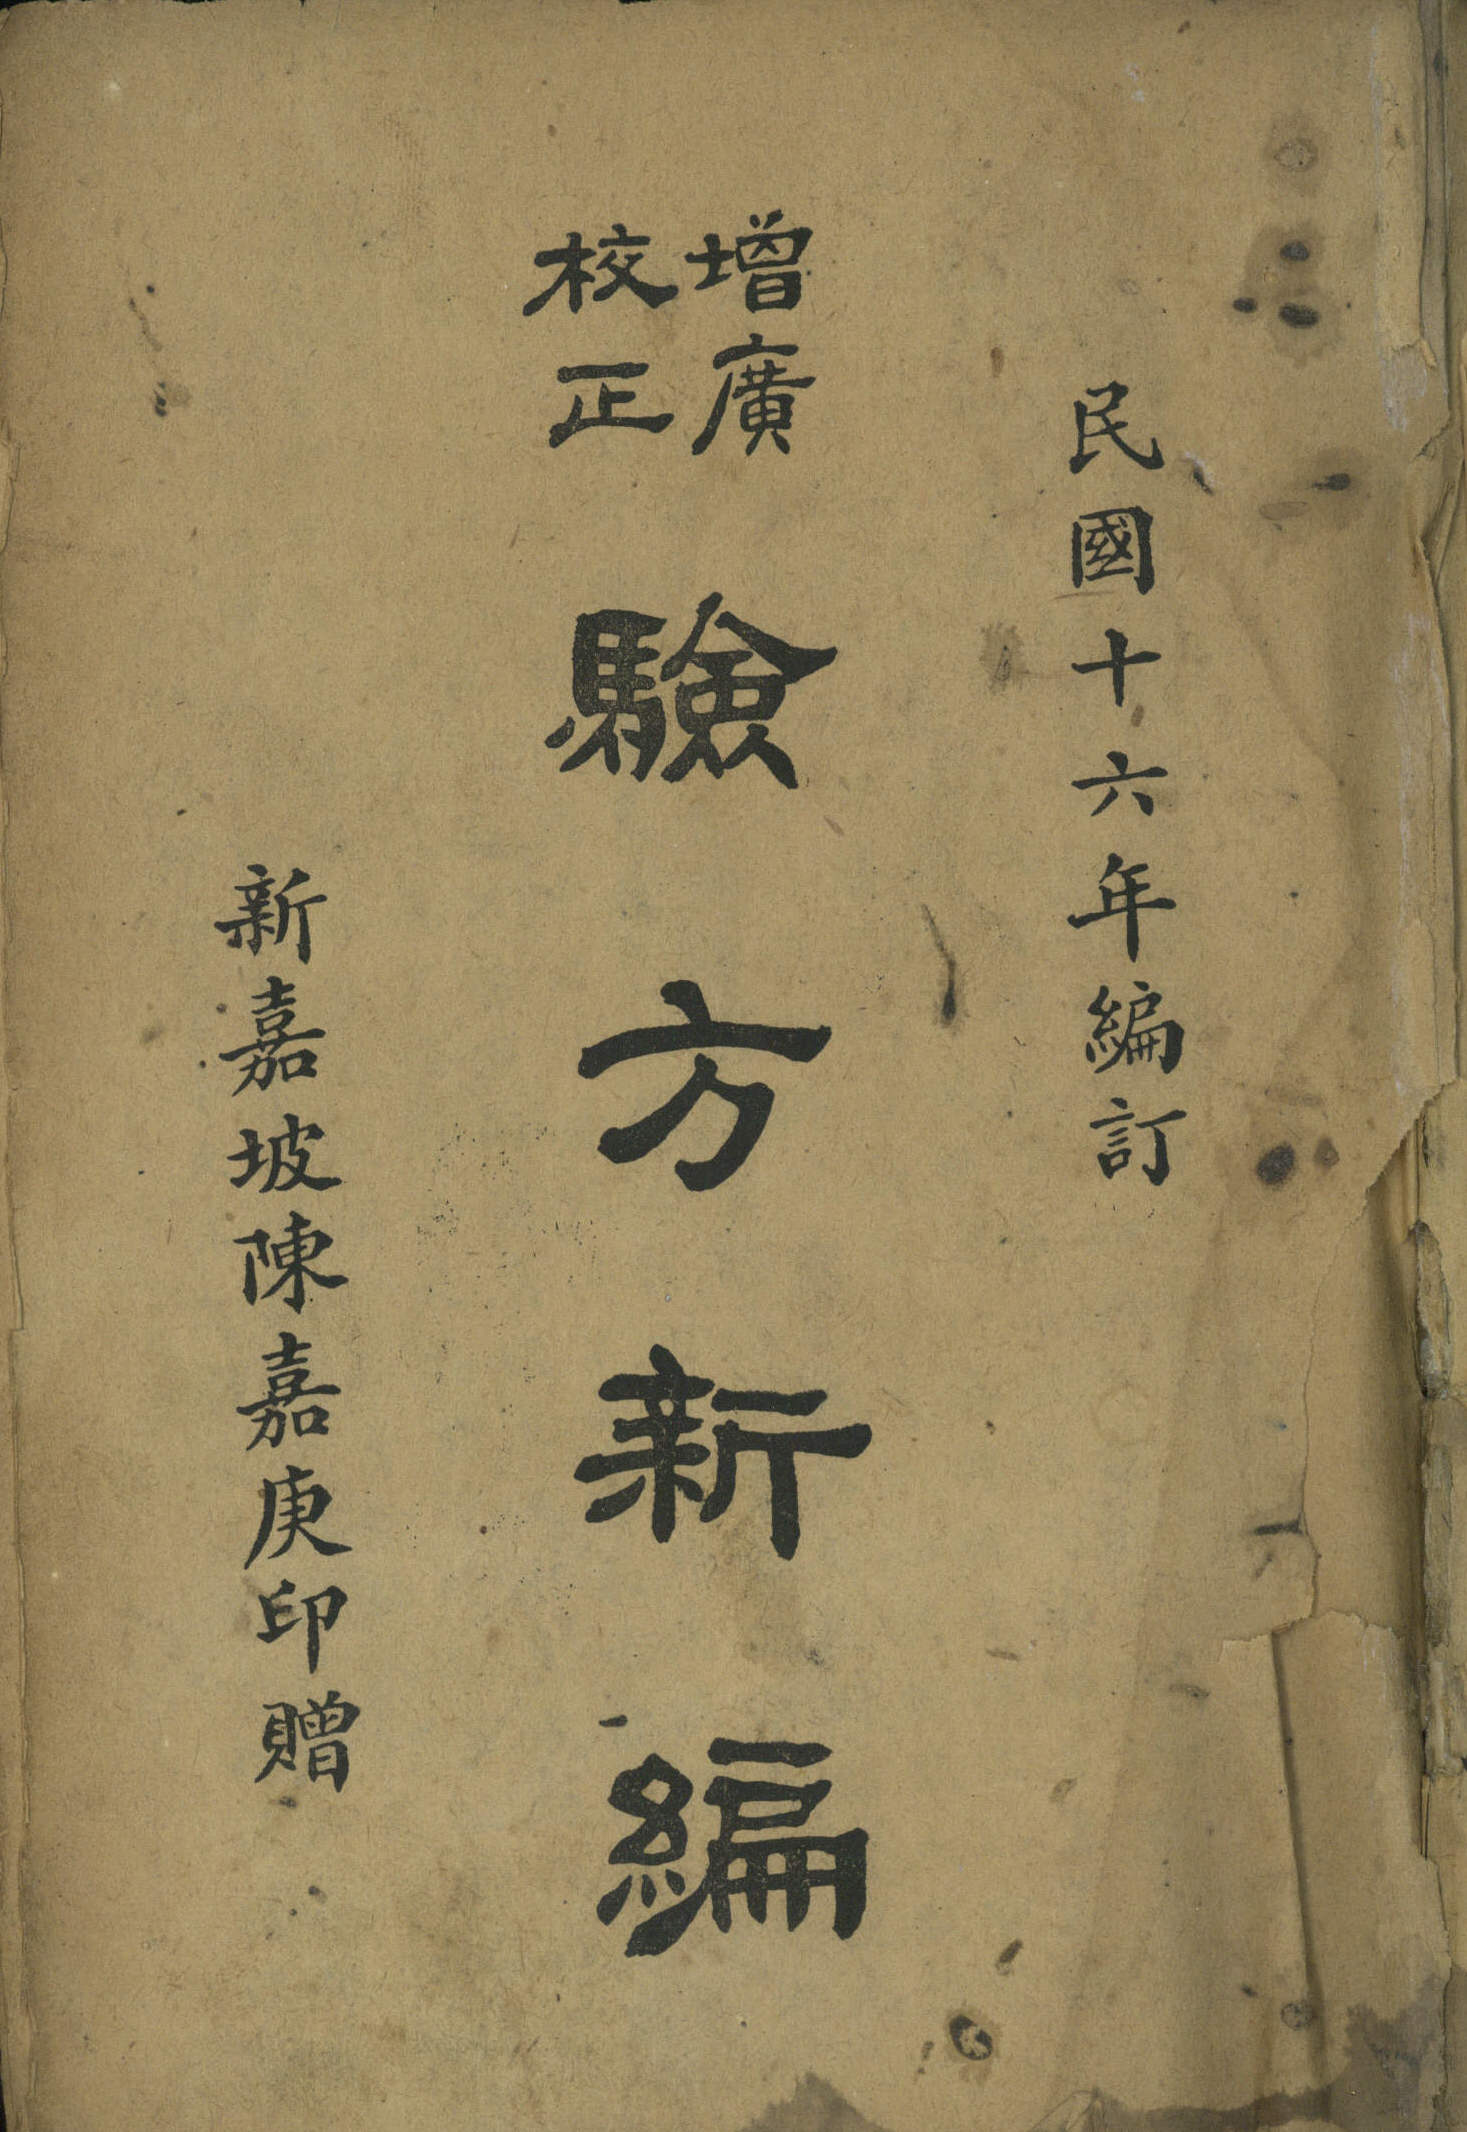 民國十六年編訂
增廣
校正
驗方新編
新嘉坡陳嘉庚印贈